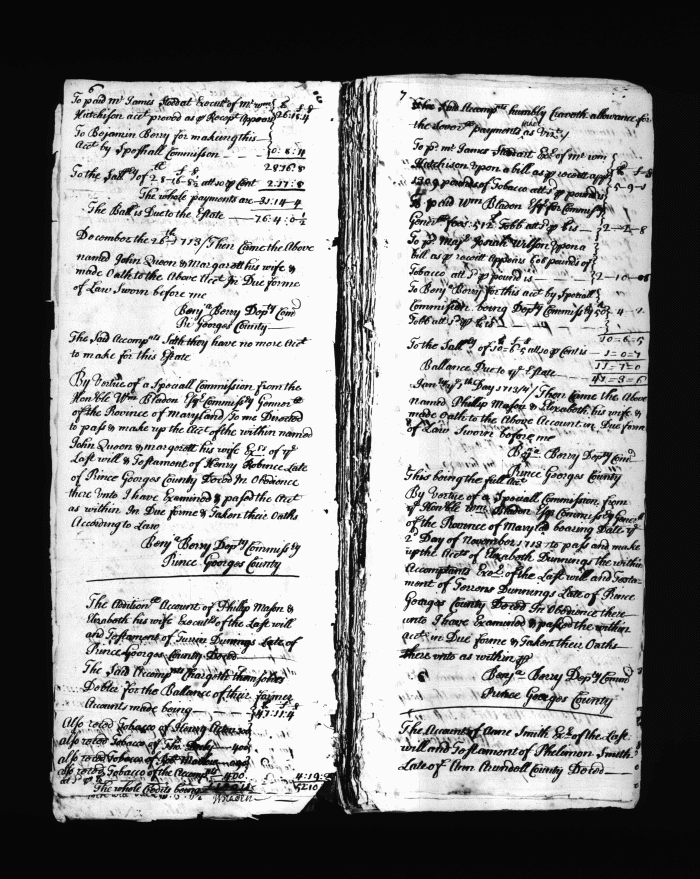 6
To paid mr James Stoddat Execut of mr wm
Hutchison act proved as p Recept Appears 26:18:4
To Benjamin Berry for making this
Act by Speshall Commission 0:8:4
28 16:8
To the Sall of 28-16-8½ att 10 p Cent 2:17:8
The whole payments are 31:14:4
The Ball is Due to the Estate 76:4:0½
December the 26th 1713/ Then Came the Above
named John Queen & Margarett his wife &
made Oath to the Above Act In Due forme
of Law Sworn before me
Benja Berry Depty Com
Pr Georges County
The Said Accompts Saith they have no more Act
to make for this Estate
By Vertue of a Speciall Commission from the
Honble Wm Bladen Esqr Commissry Gennor
of the Province of Maryland/ To me Directed
to pass & make up the Act of the within named
John Queen & margrett his wife Exs of ye
Last will & Testament of Henry Robines Late
of Prince Georges County Deced In Obedience
there Vnto I have Examined & passed the Act
as within In Due forme & Taken their Oaths
According to Law
Benja Berry Depty Commissry
Prince Georges County
The Aditional Account of Phillip Mason &
Elizabeth his wife Execut of the Last will
and Testament of Turren Dunnings Late of
Prince Georges County Deced
The Said Accompts Chargeth themselves
Debter for the Ballance of their former
Accounts made being 47:11:4
Also rected Tobacco of Henry Acterson
also rected Tobacco of Tho
also rected Tobacco of
also rected Tobacco of the Accompts 400
4:19:
The whole Credits being 5210
7
The Said Accompts humbly Craveth allowance for
the Severll payments as Viz
To pd mr James Stoddart Exe of mr wm
Hutchison upon a bill as p receitt app
1309 pounds of Tobacco att 1d p pound 5-9-1
To paid Wm Bladen Esqr for Commissry
Gen fees: 512 Tobb att 1d p is 2-2-8
To pd Majr Josiah Wilson upon a
bill as p receitt Appears 606 pounds of
Tobacco att 1d p pound is 2-10-06
To Benj Berry for this act by Speciall
Commission being Depty Commissry 50
Tobb att 1d p is 4-2
10=6=5
To the Sallry of 10=6=5 att 10 p Cent is 1=0=7
11=7=0
Ballance Due to ye Estate 47=3=6
Janry ye 5th Day 1713/4/ Then Came the Above
named Phillip Mason & Elexabeth his wife &
made Oath to the Above Account in Due form
of Law Sworn before me
Benja Berry Depty Com
Prince Georges County
This being the full Act
By Vertue of a Speciall Commission from
ye Honble Wm Bladen Esqr Commissry Genll
of the Province of Maryld bearing Date ye
2d Day of November 1713 to pass and make
up the Acts of Elizabeth Dunnings the within
Accomptants Exe of the Last will and Testa-
ment of Terrens Dunnings Late of Prince
Georges County Deced In Obedience there-
unto I have Examined & passed the within
act in Due forme & Taken their Oaths
there vnto as within
Benja Berry Depty Comm
Prince Georges County
The Account of Anne Smith Ex of the Last
will and Testament of Philemon Smith
Late of Ann Arundell County Deced